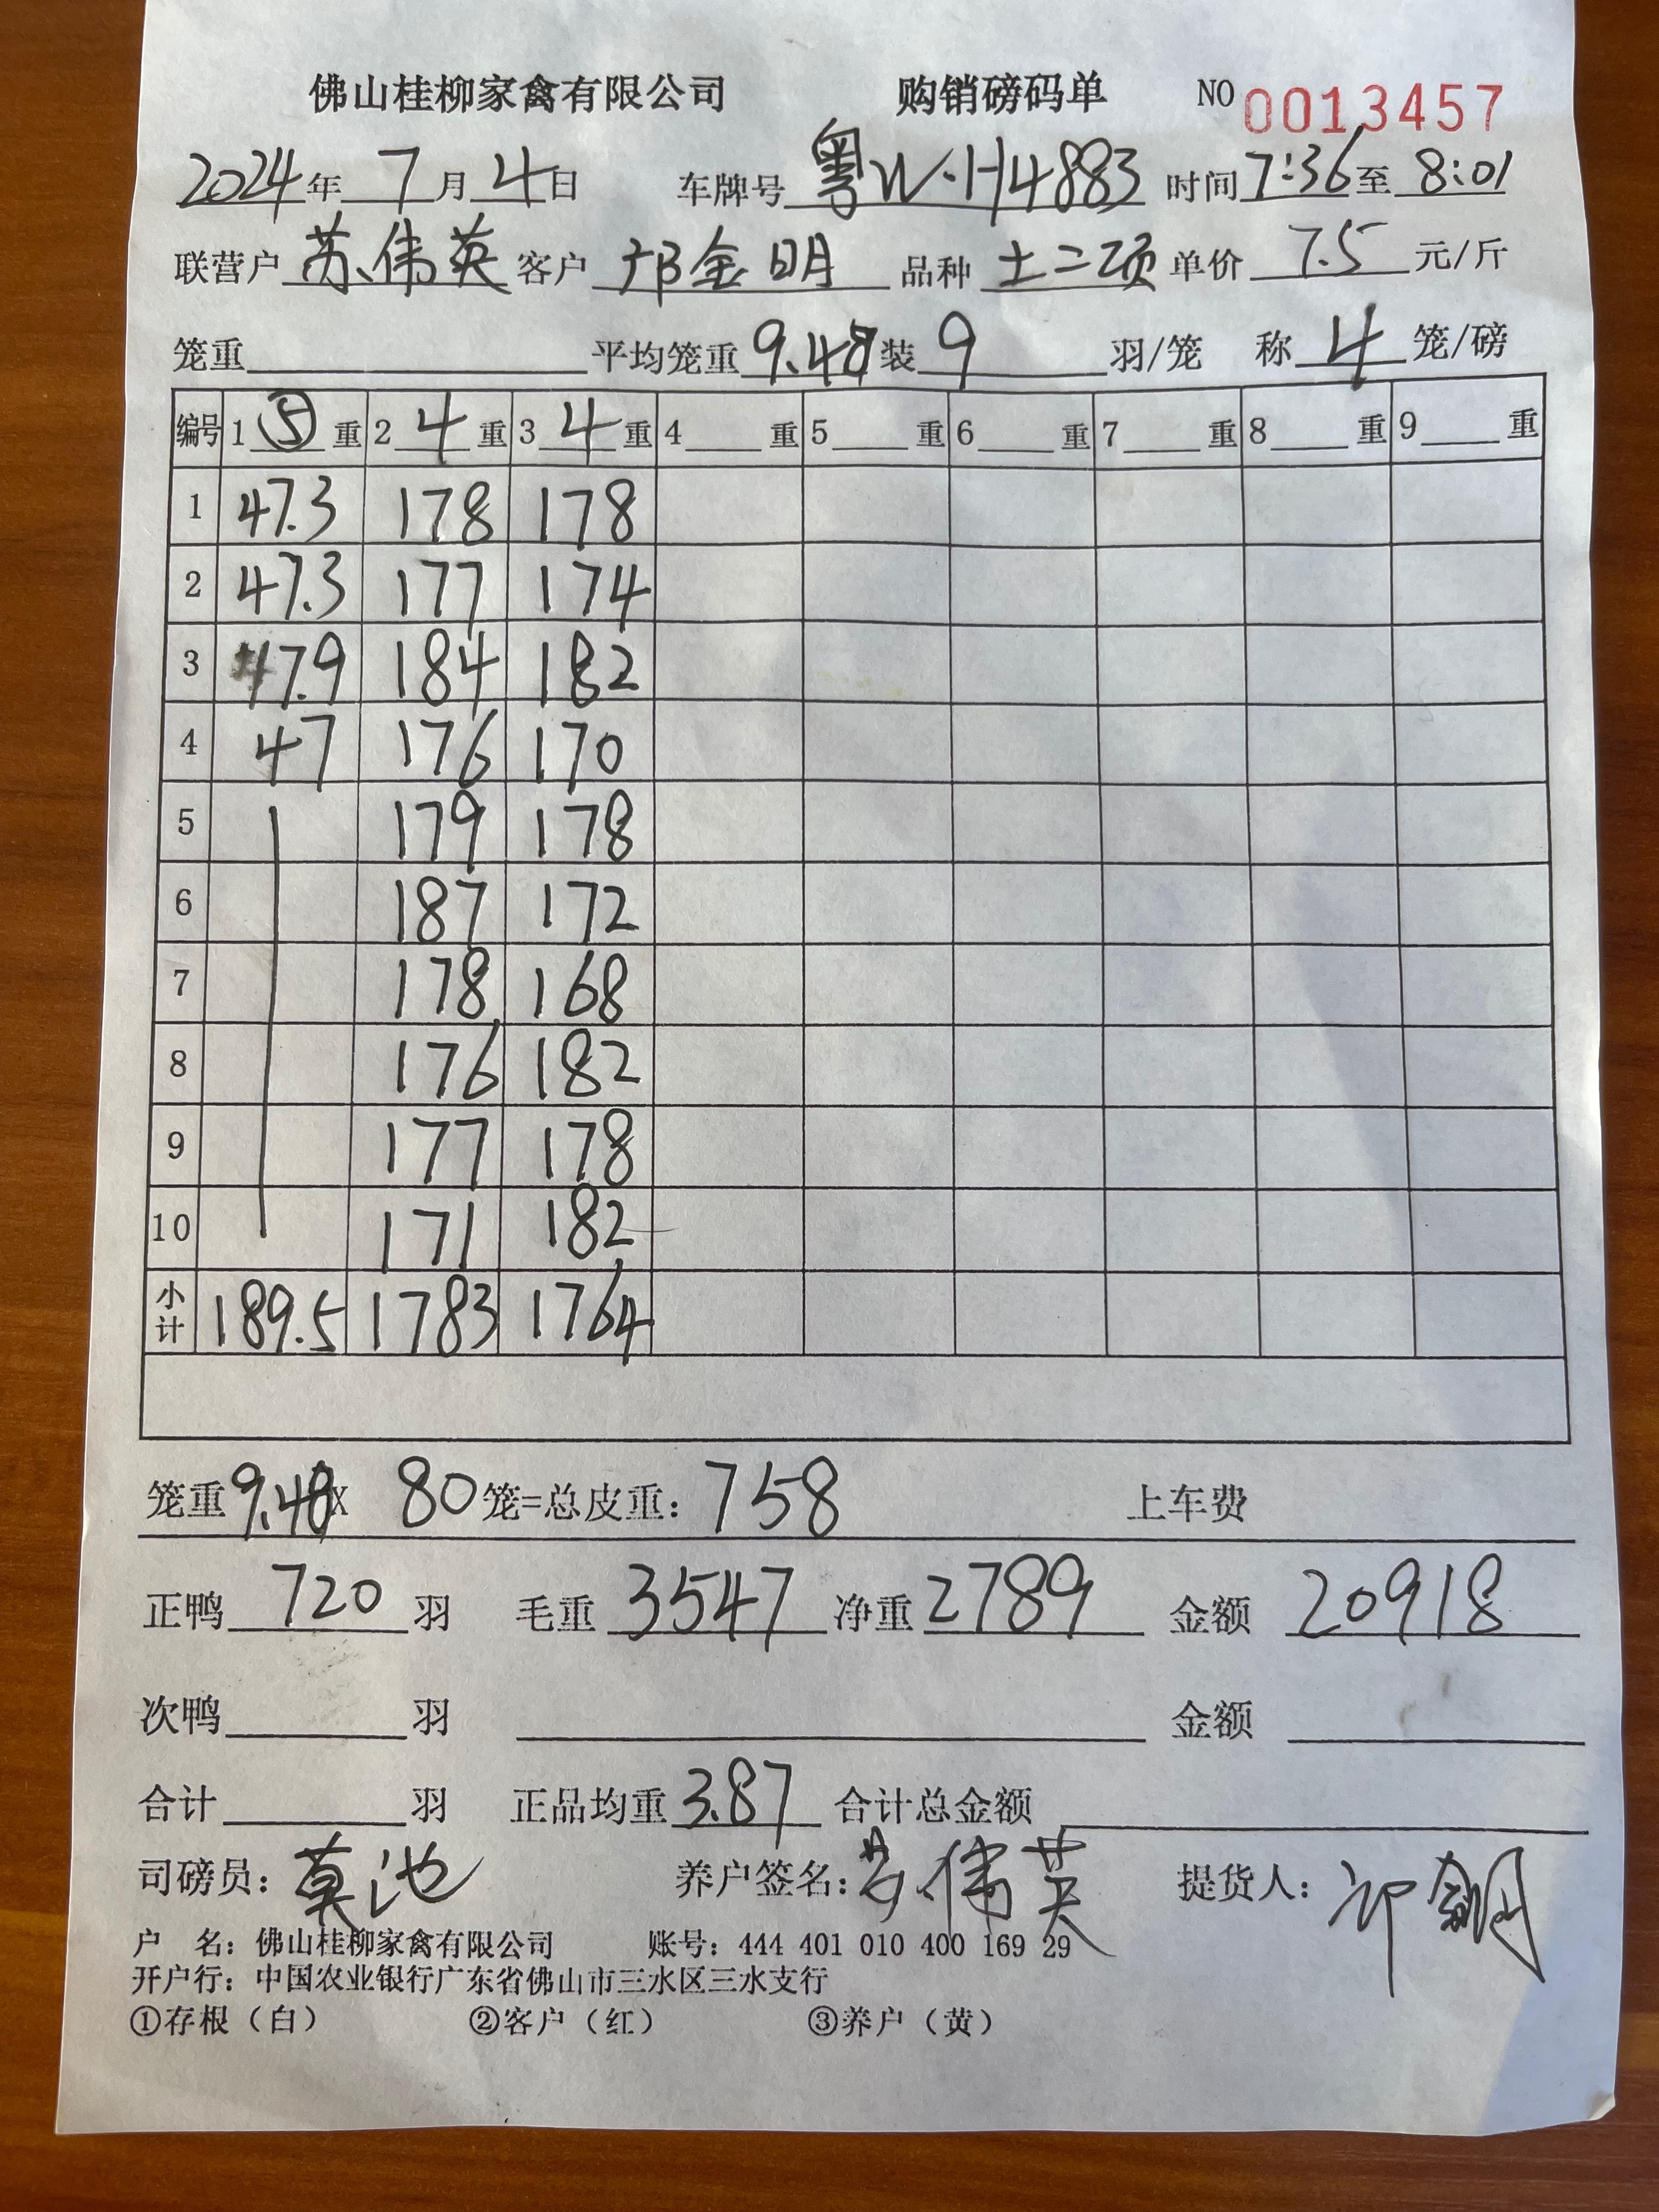 佛山桂柳家禽有限公司 购销磅码单 NO 0013457
2024年 7月 4日 车牌号 粤W·H4883 时间 7:36 至 8:01
联营户 苏伟英 客户 邝金明 品种 土二项 单价 7.5 元/斤
笼重 平均笼重 9.48 装 9 羽/笼 称 4 笼/磅
编号 1 ⑤ 重 2 4 重 3 4 重 4 重 5 重 6 重 7 重 8 重 9 重
1 47.3 178 178
2 47.3 177 174
3 47.9 184 182
4 47 176 170
5 179 178
6 187 172
7 178 168
8 176 182
9 177 178
10 171 182
小计 189.5 1783 1764
笼重 9.48 X 80 笼=总皮重: 758 上车费
正鸭 720 羽 毛重 3547 净重 2789 金额 20918
次鸭 羽 金额
合计 羽 正品均重 3.87 合计总金额
司磅员: 莫池 养户签名: 苏伟英 提货人:
户 名: 佛山桂柳家禽有限公司 账号: 444 401 010 400 169 29
开户行: 中国农业银行广东省佛山市三水区三水支行
①存根（白） ②客户（红） ③养户（黄）